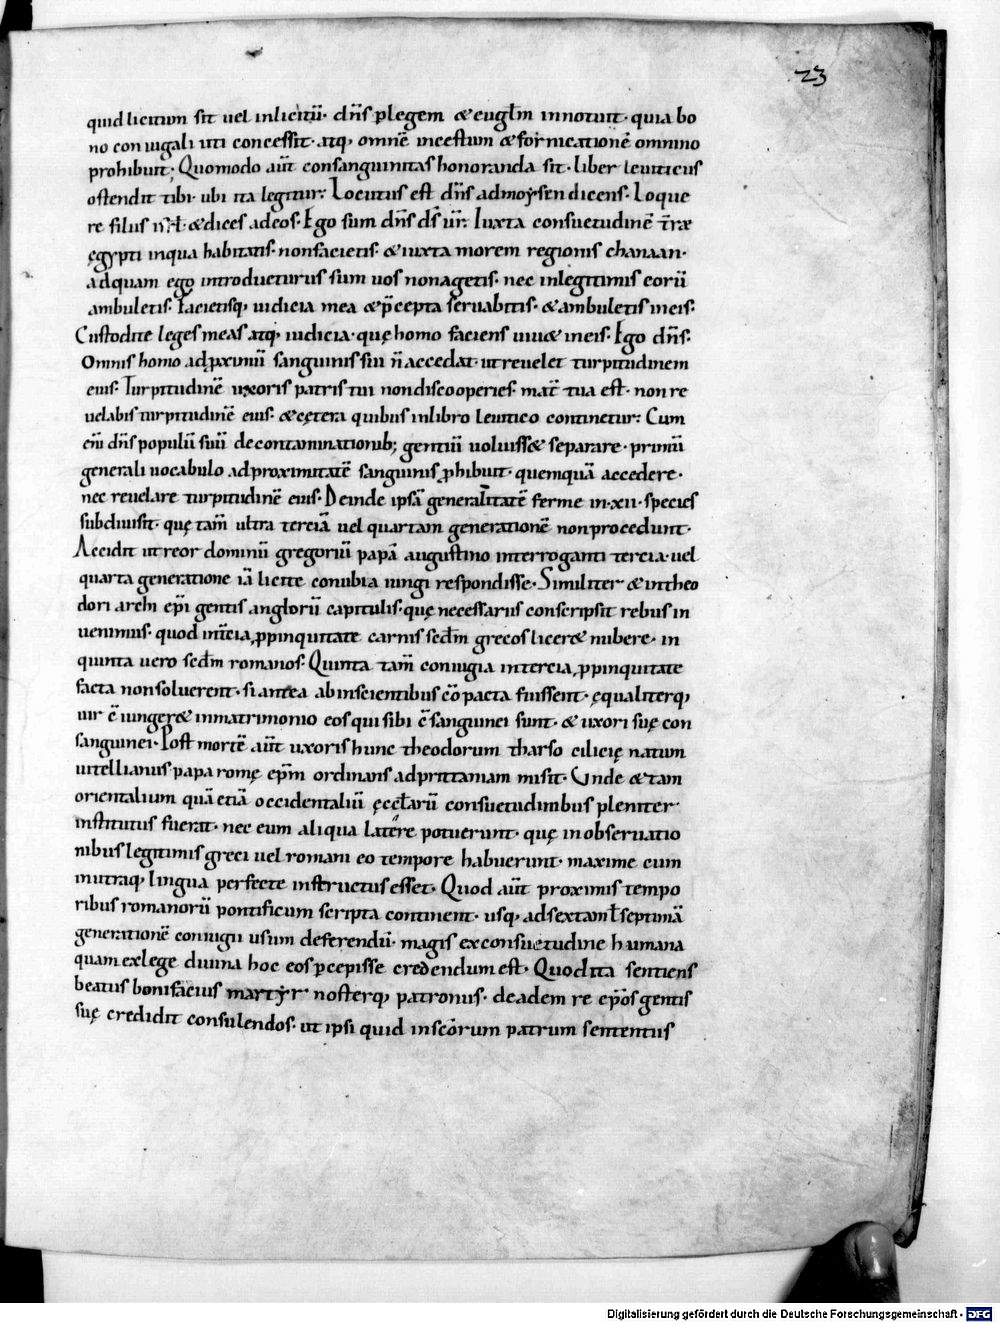 23
quid licitum sit uel inlicitũ· dñs plegem & euglm̄ innotuit· quia bo
no coniugali uti concessit· atq; omnē incestum & fornicationē omnino
prohibuit; Quomodo aūt consanguinitas honoranda sit· liber leuiticus
ostendit tibi· ubi ita legitur: Locutus est dñs admoysen dicens· Loque
re filiis isrł· & dices adeos· Ego sum dñs ds̄ ur̄· Iuxta consuetudinē tr̄ae
ęgypti inqua habitatis· nonfacietis· & iuxta morem regionis chanaan·
adquam ego introducturus sum uos nonagetis· nec inlegitimis eorū
ambuletis· Facietisq; iudicia mea & p̄cepta seruabitis· & ambuletis ineis·
Custodite leges meas atq; iudicia· quę homo faciens uiu& ineis· Ego dñs·
Omnis homo adpximū sanguinis sui n̄ accedat· utreuelet turpitudinem
eius· Turpitudinē uxoris patris tui nondiscooperies· mat̄ tua est· non re
uelabis turpitudinē eius· & cętera quibus inlibro leuitico continetur: Cum
eni͂ dñs populū suū decontaminationib; gentiū uoluiss& separare· primū
generali uocabulo adproximitatē sanguinis phibuit· quemquā accedere·
nec reuelare turpitudinē eius· Deinde ipsā generalitatē ferme in·xii· species
subdiuisit· quę tam̄ ultra terciā uel quartam generationē nonprocedunt·
Accidit ut reor dominū gregoriū papā augustino interroganti tercia· uel
quarta generatione iā licite conubia iungi respondisse· Similiter & intheo
dori archi ep̄i gentis anglorū capitulis· quę necessariis conscripsit rebus in
uenimus· quod int̄cia ppinquitate carnis scdm̄ grecos licer& nubere· in
quinta uero scdm̄ romanos· Quinta tam̄ coniugia intercia ppinquitate
facta nonsoluerent· si antea abinscientibus cō pacta fuissent· ęqualiterq;
uir c̄ iunger& inmatrimonio eos qui sibi c̄sanguinei sunt· & uxori suę con
sanguinei· Post mortē aūt uxoris hunc theodorum tharso cilicię natum
uitellianus papa romę ep̄m ordinans adprittaniam misit· Unde & tam
orientalium quā etiā occidentaliū ęccl̄arū consuetudinibus pleniter
institutus fuerat· nec eum aliqua latere potuerunt· quę in obseruatio
nibus legitimis greci uel romani eo tempore habuerunt· maxime cum
inutraq; lingua perfecte instructus esset· Quod aūt proximis tempo
ribus romanorū pontificum scripta continent· usq; adsextam ł septimā
generationē coniugii usum deferendū· magis exconsuetudine humana
quam exlege diuina hoc eos pcepisse credendum est· Quod ita sentiens
beatus bonifacius martyr nosterq; patronus· deadem re ep̄os gentis
suę credidit consulendos· ut ipsi quid insc̄orum patrum sententiis
Digitalisierung gefördert durch die Deutsche Forschungsgemeinschaft - DFG